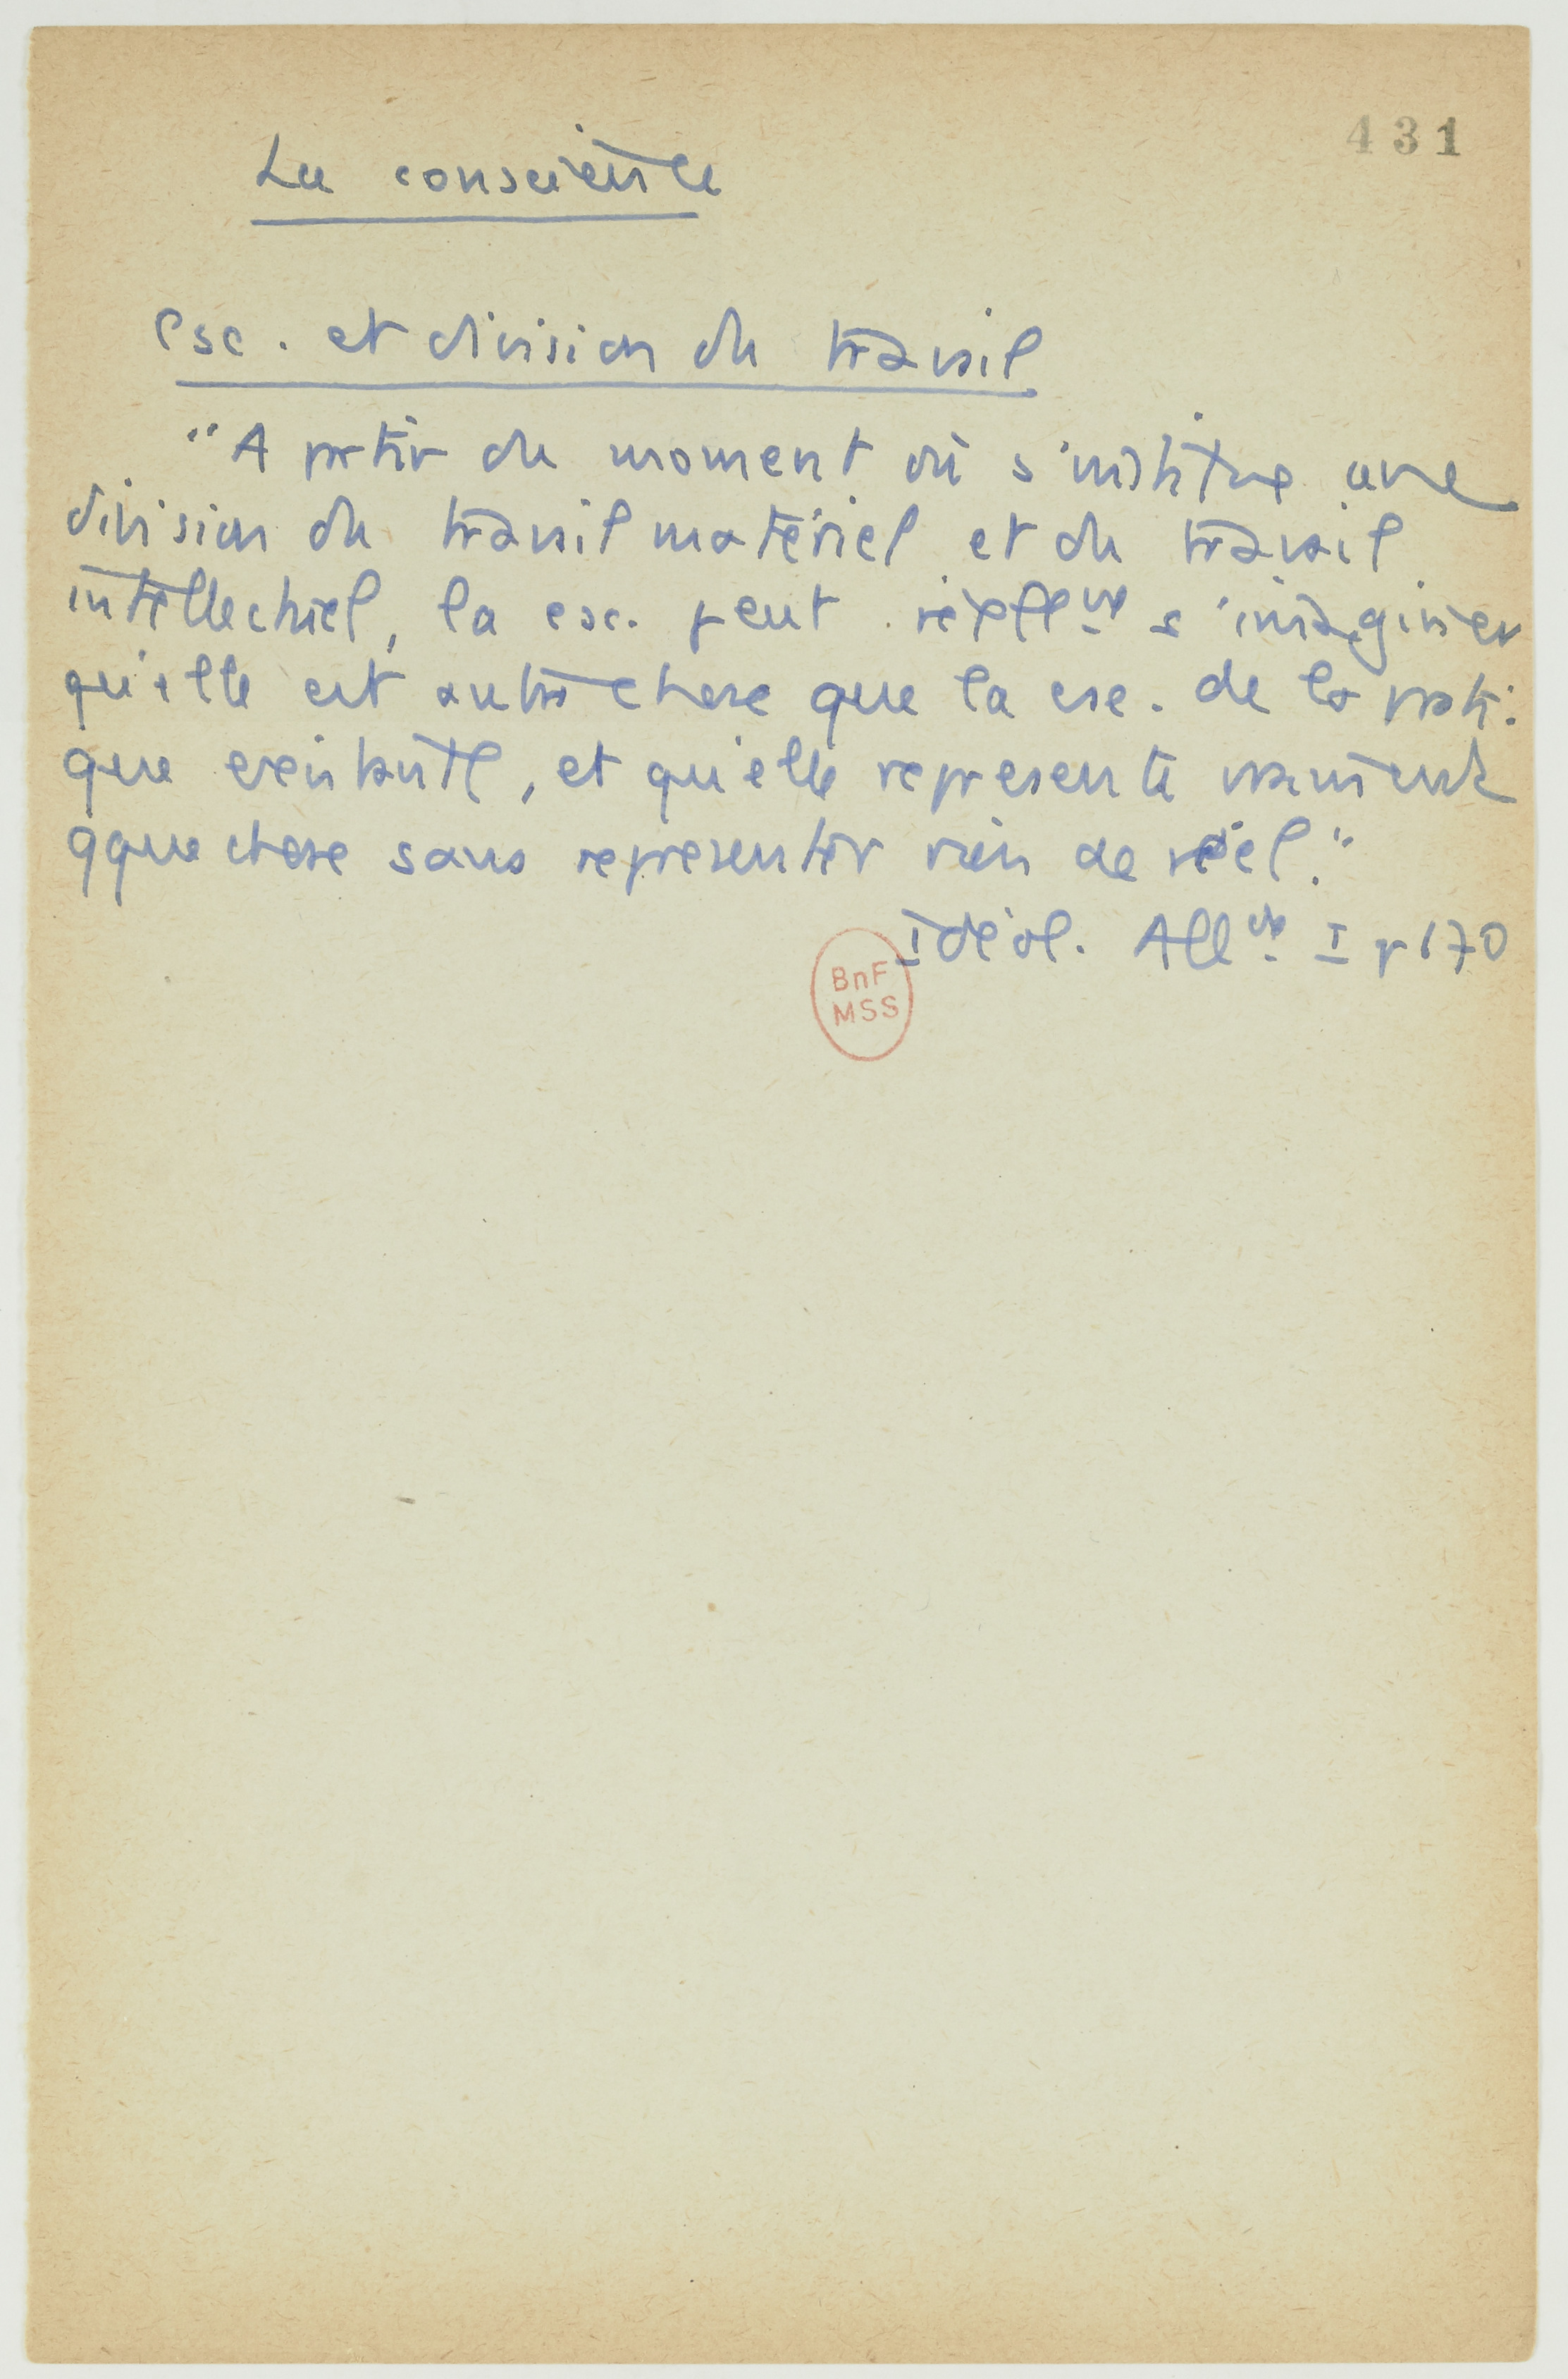 431
La conscience
Csc. et division du travail
"A partir du moment où s'institue une
division du travail matériel et du travail
intellectuel, la csc. peut réellemt s'imaginer
qu'elle est autre chose que la csc. de la prati-
que existante, et qu'elle represente vraiment
qque chose sans representer rien de réel."
Idéol. Allde I p 170
BnF
MSS